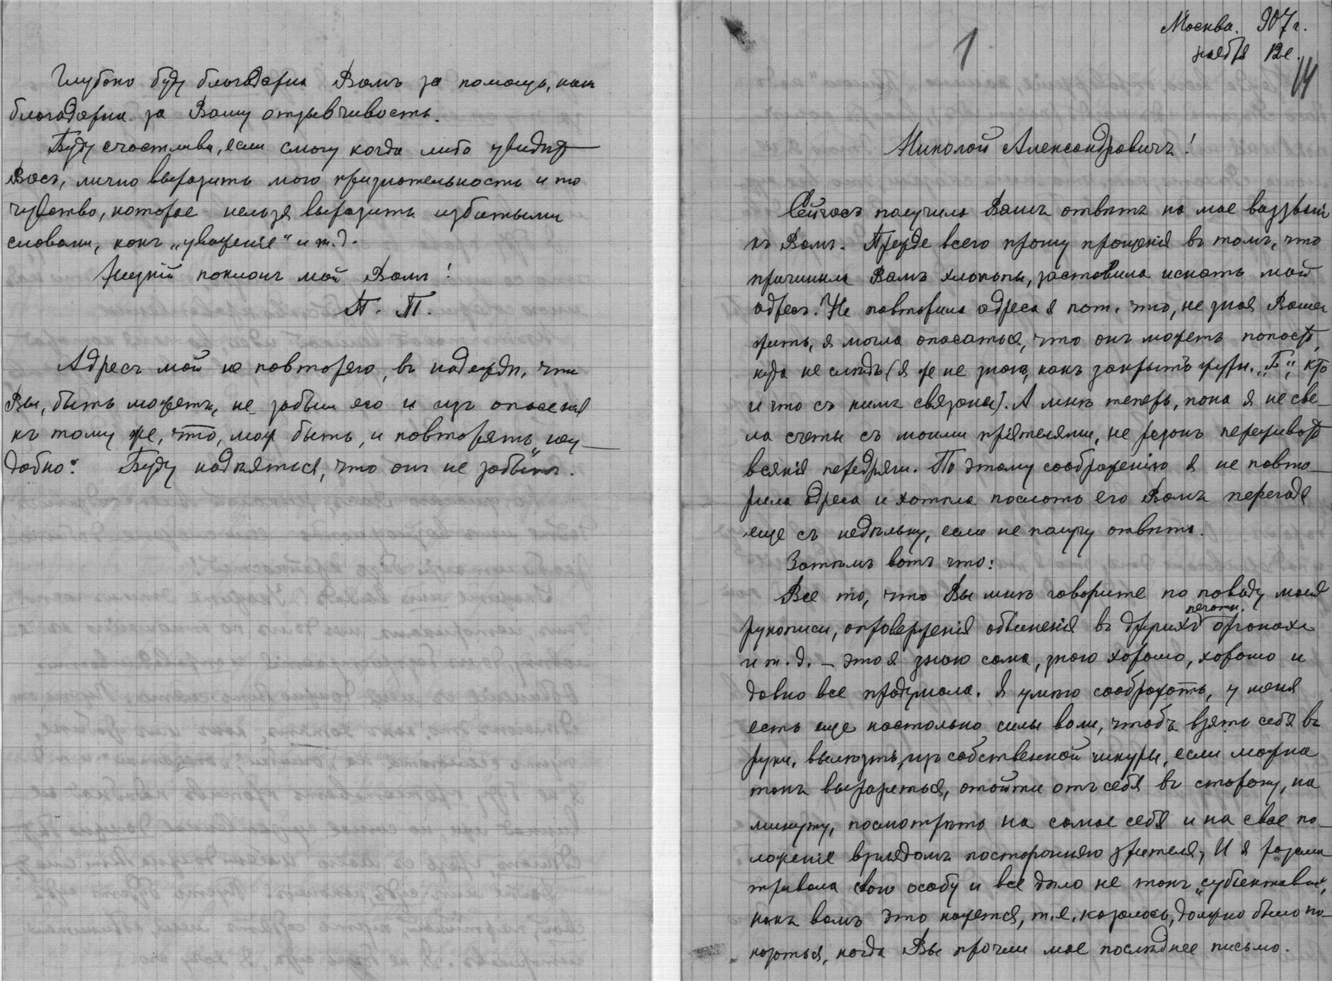 Глубоко буду благодарна Вамъ за помощь, какъ
благодарна за Вашу отзывчивость.
Буду счастлива, если смогу когда либо увидѣть
Васъ, лично выразить мою признательность и то
чувство, которое нельзя выразить избитыми
словами, какъ „уваженіе“ и т.д.
Низкій поклонъ мой Вамъ!
П. П.
Адресъ мой не повторяю, въ надеждѣ, что
Вы, быть можетъ, не забыли его и изъ опасенія
къ тому же, что, мож. быть, и повторять неу-
добно. Буду надѣяться, что онъ не забытъ.
1
Москва. 907 г.
ноября 12 е.
14
Николай Александровичъ!
Сейчасъ получила Вашъ отвѣтъ на мое воззваніе
къ Вамъ. Прежде всего прошу прощенія въ томъ, что
причинила Вамъ хлопоты, заставила искать мой
адресъ. Не повторила адреса я пот. что, не зная Вашего
жить, я могла опасаться, что онъ можетъ попасть,
куда не слѣдъ (я же не знаю, какъ закрытъ „Б“, кто
и что съ нимъ связаны). А мнѣ теперь, пока я не све-
ла счеты съ моими пріятелями, не резонъ переживать
всякія передряги. По этому соображенію я не повто-
рила адреса и хотѣла послать его Вамъ переждавъ
еще съ недѣльку, если не получу отвѣта.
Затѣмъ вотъ что:
Все то, что Вы мнѣ говорите по поводу моей
рукописи, опроверженія обвиненія въ другихъ печатн. органахъ
и т. д. – это я знаю сама, знаю хорошо, хорошо и
давно все продумала. Я умѣю соображать, у меня
есть еще настолько силы воли, чтобъ взять себя въ
руки, вылѣзть изъ собственной шкуры, если можно
такъ выразиться, отойти отъ себя въ сторону, на
минуту, посмотрѣть на самое себя и на свое по-
ложеніе взглядомъ посторонняго зрителя. И я разсма-
тривала свою особу и все дѣло не такъ „субъективно“,
какъ вамъ это кажется, т.е. казалось, должно было по-
казаться, когда Вы прочли мое послѣднее письмо.